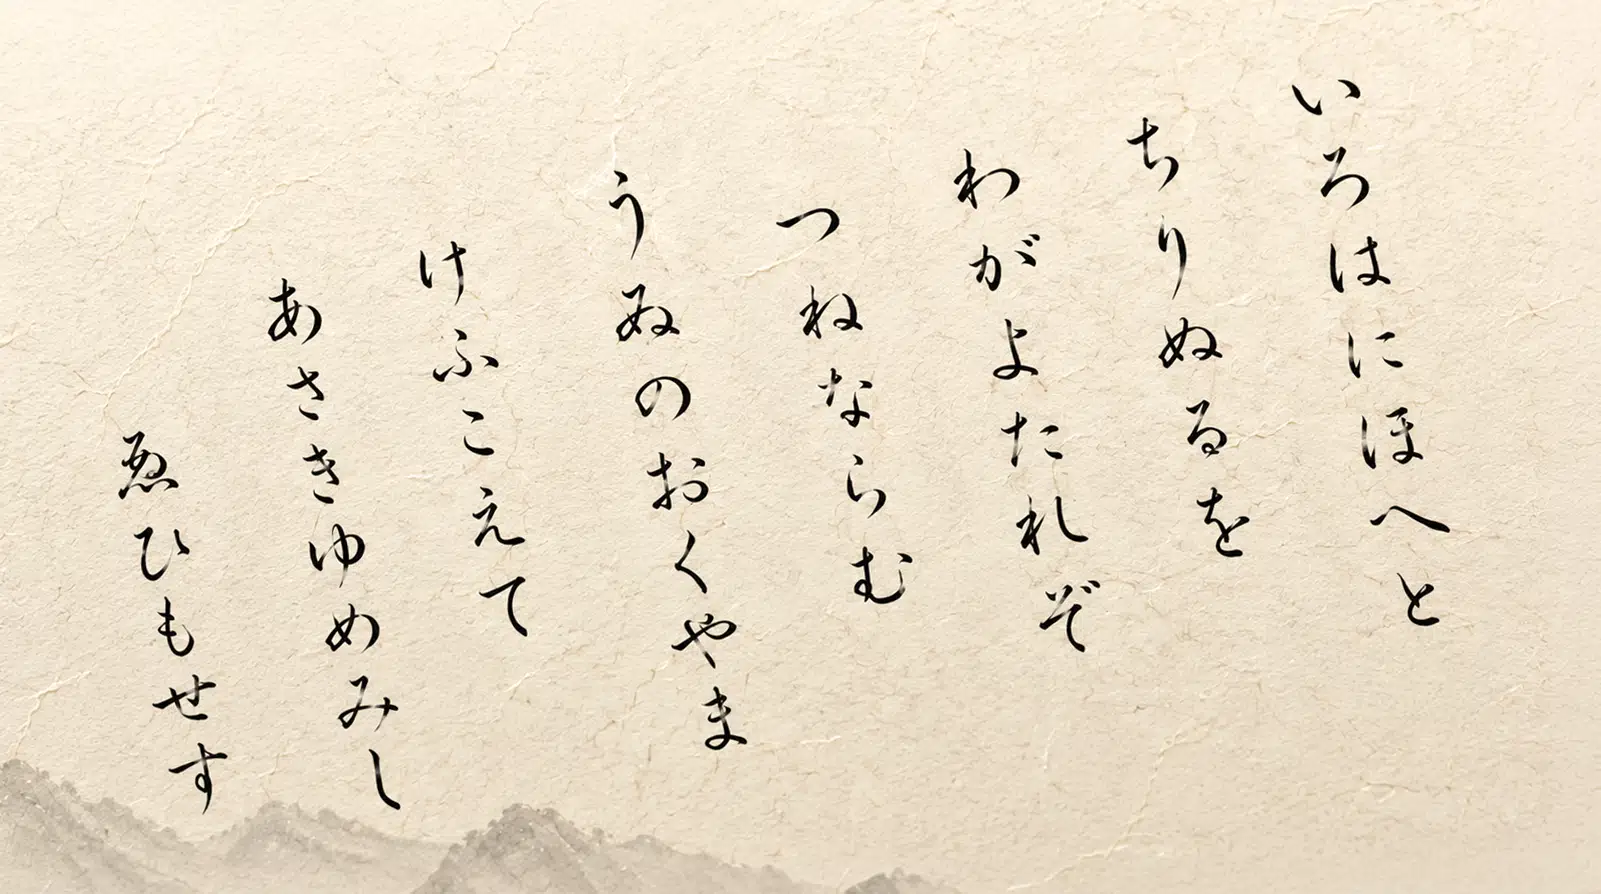 いろはにほへと
ちりぬるを
わがよたれぞ
つねならむ
うゐのおくやま
けふこえて
あさきゆめみし
ゑひもせす